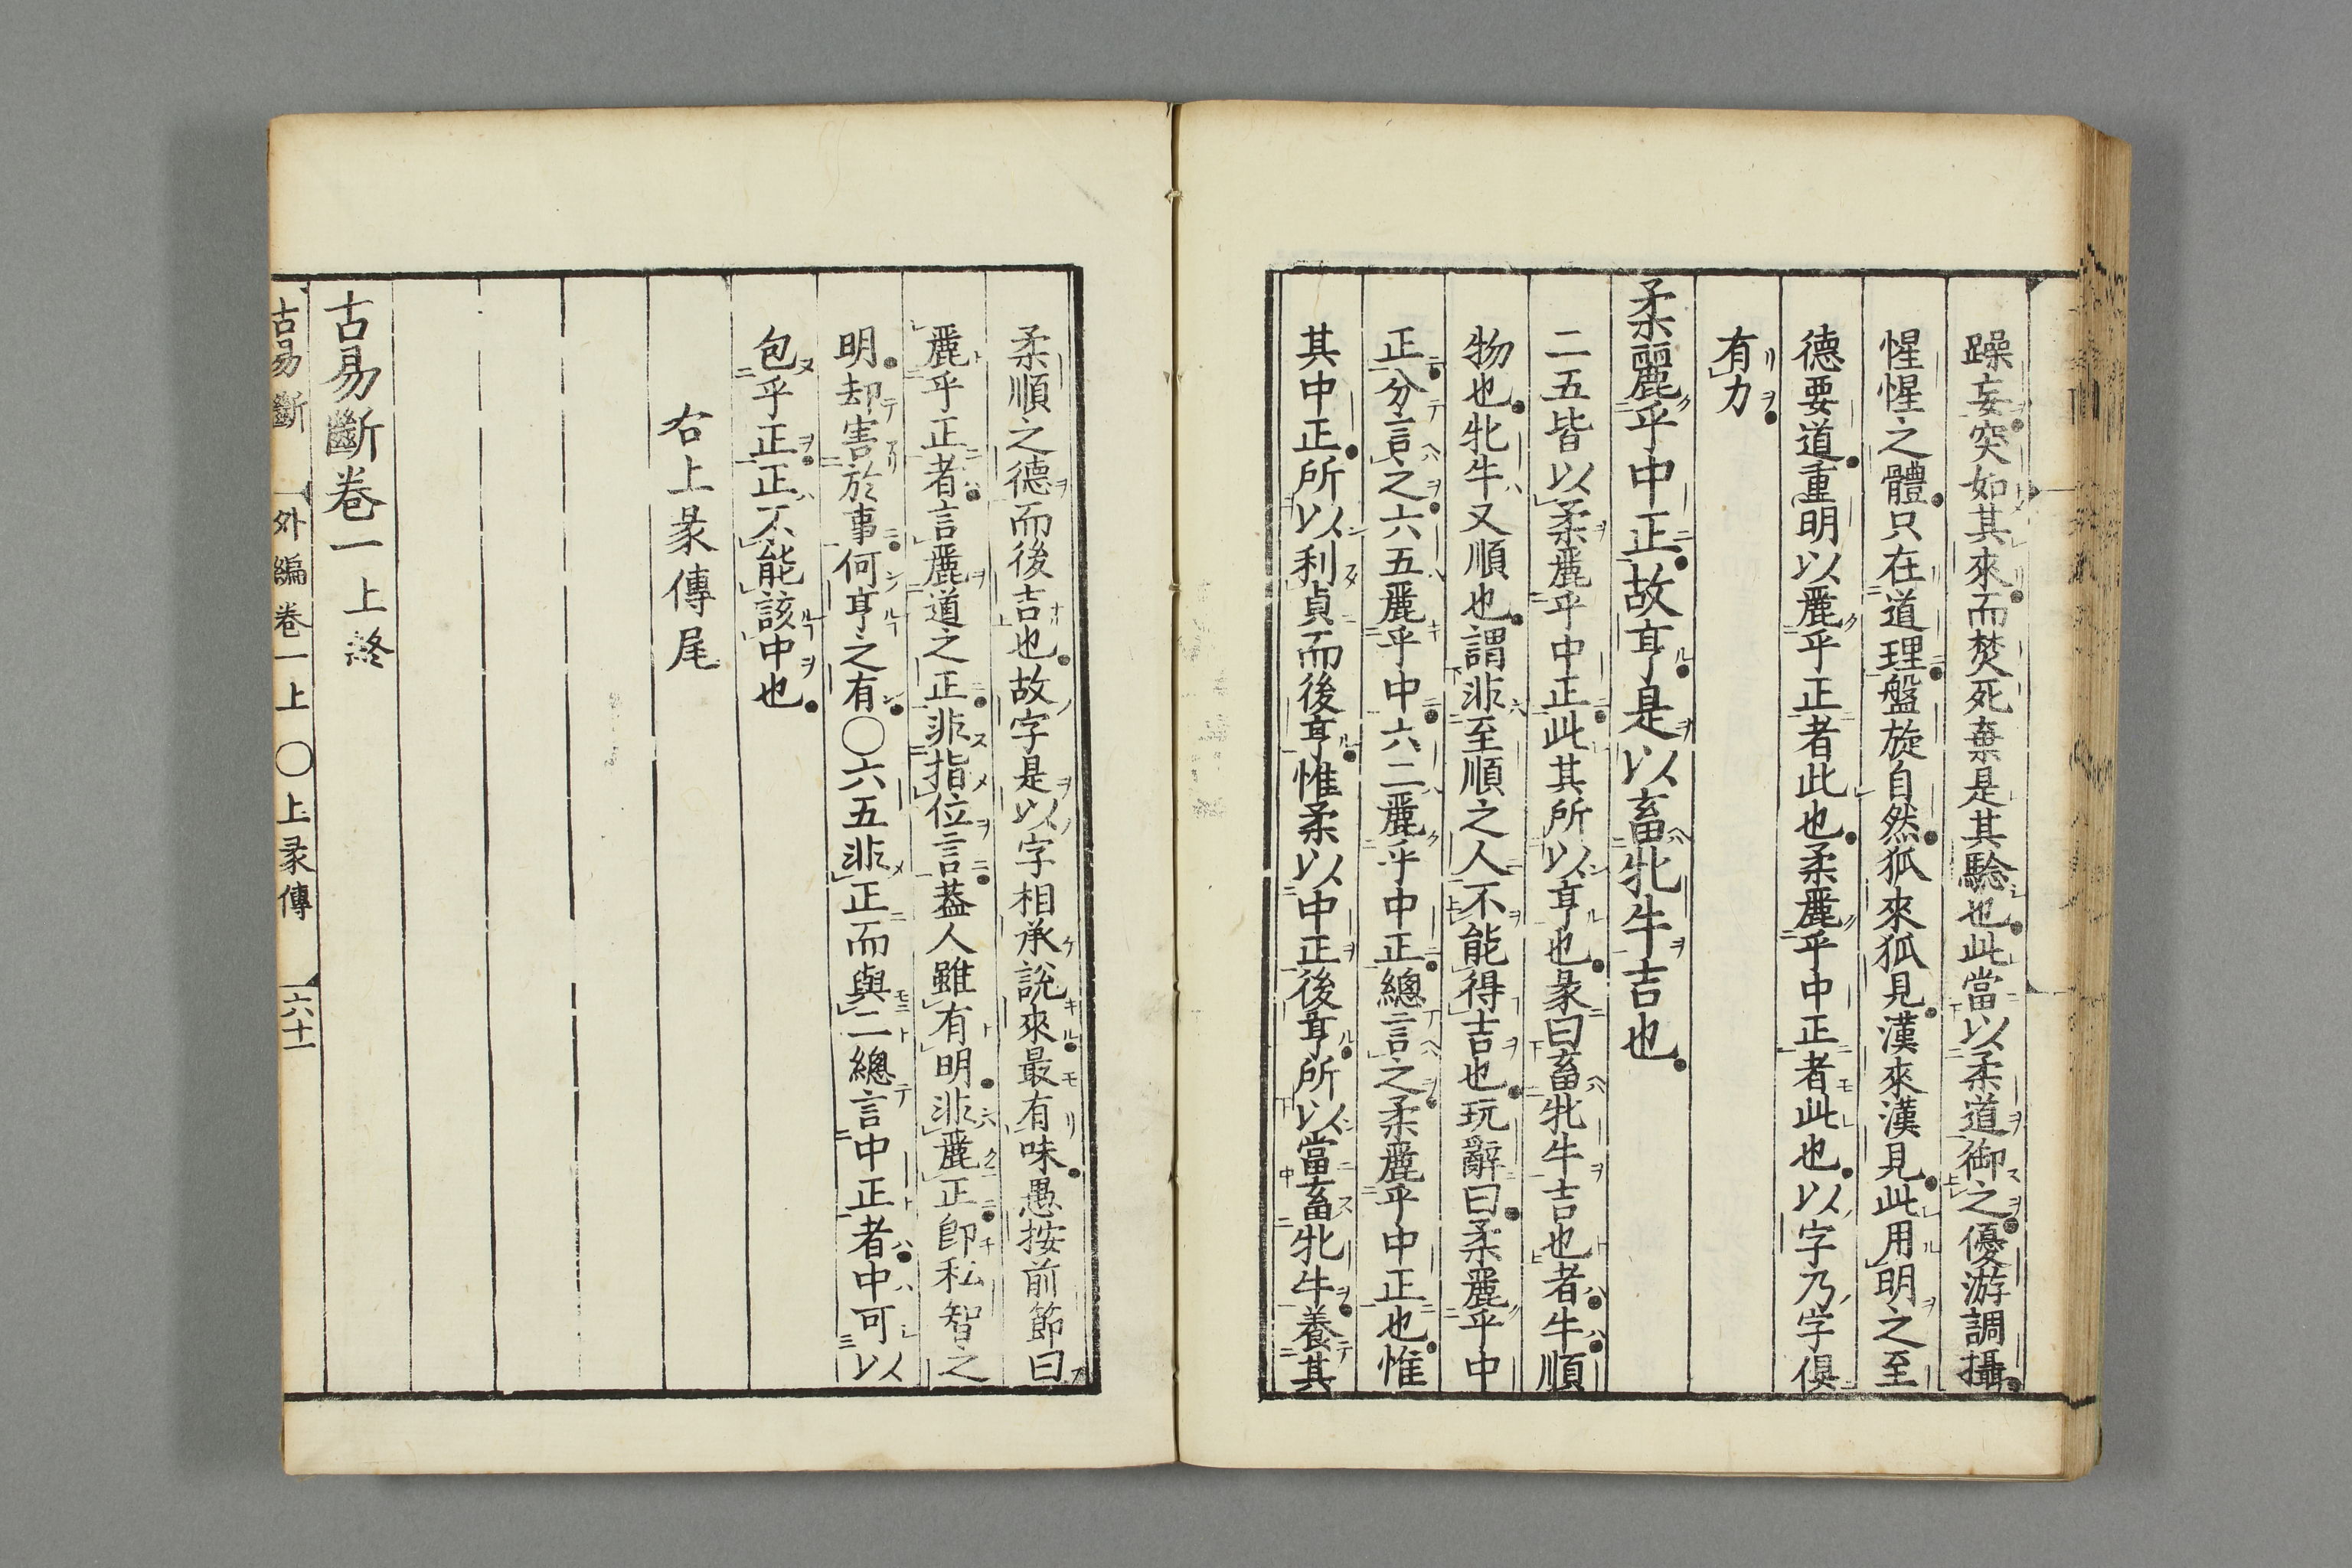 躁妄突如其來而焚死棄是其驗也此當以柔道御之優游調攝
惺惺之體只在道理盤旋自然狐來狐見漢來漢見此用明之至
德要道重明以麗乎正者此也柔麗乎中正者此也以字乃字俱
有力
柔麗乎中正故亨是以畜牝牛吉也
二五皆以柔麗乎中正此其所以亨也彖曰畜牝牛吉也者牛順
物也牝牛又順也謂非至順之人不能得吉也玩辭曰柔麗乎中
正分言之六五麗乎中六二麗乎中正總言之柔麗乎中正也惟
其中正所以利貞而後亨惟柔以中正後亨所以當畜牝牛養其
柔順之德而後吉也故字是以字相承說來最有味愚按前節曰
麗乎正者言麗道之正非指位言蓋人雖有明非麗正卽私智之
明却害於事何亨之有〇六五非正而與二總言中正者中可以
包乎正正不能該中也
右上彖傳尾
古易斷卷一上終
古易斷 外編卷一上 〇上彖傳 六十一